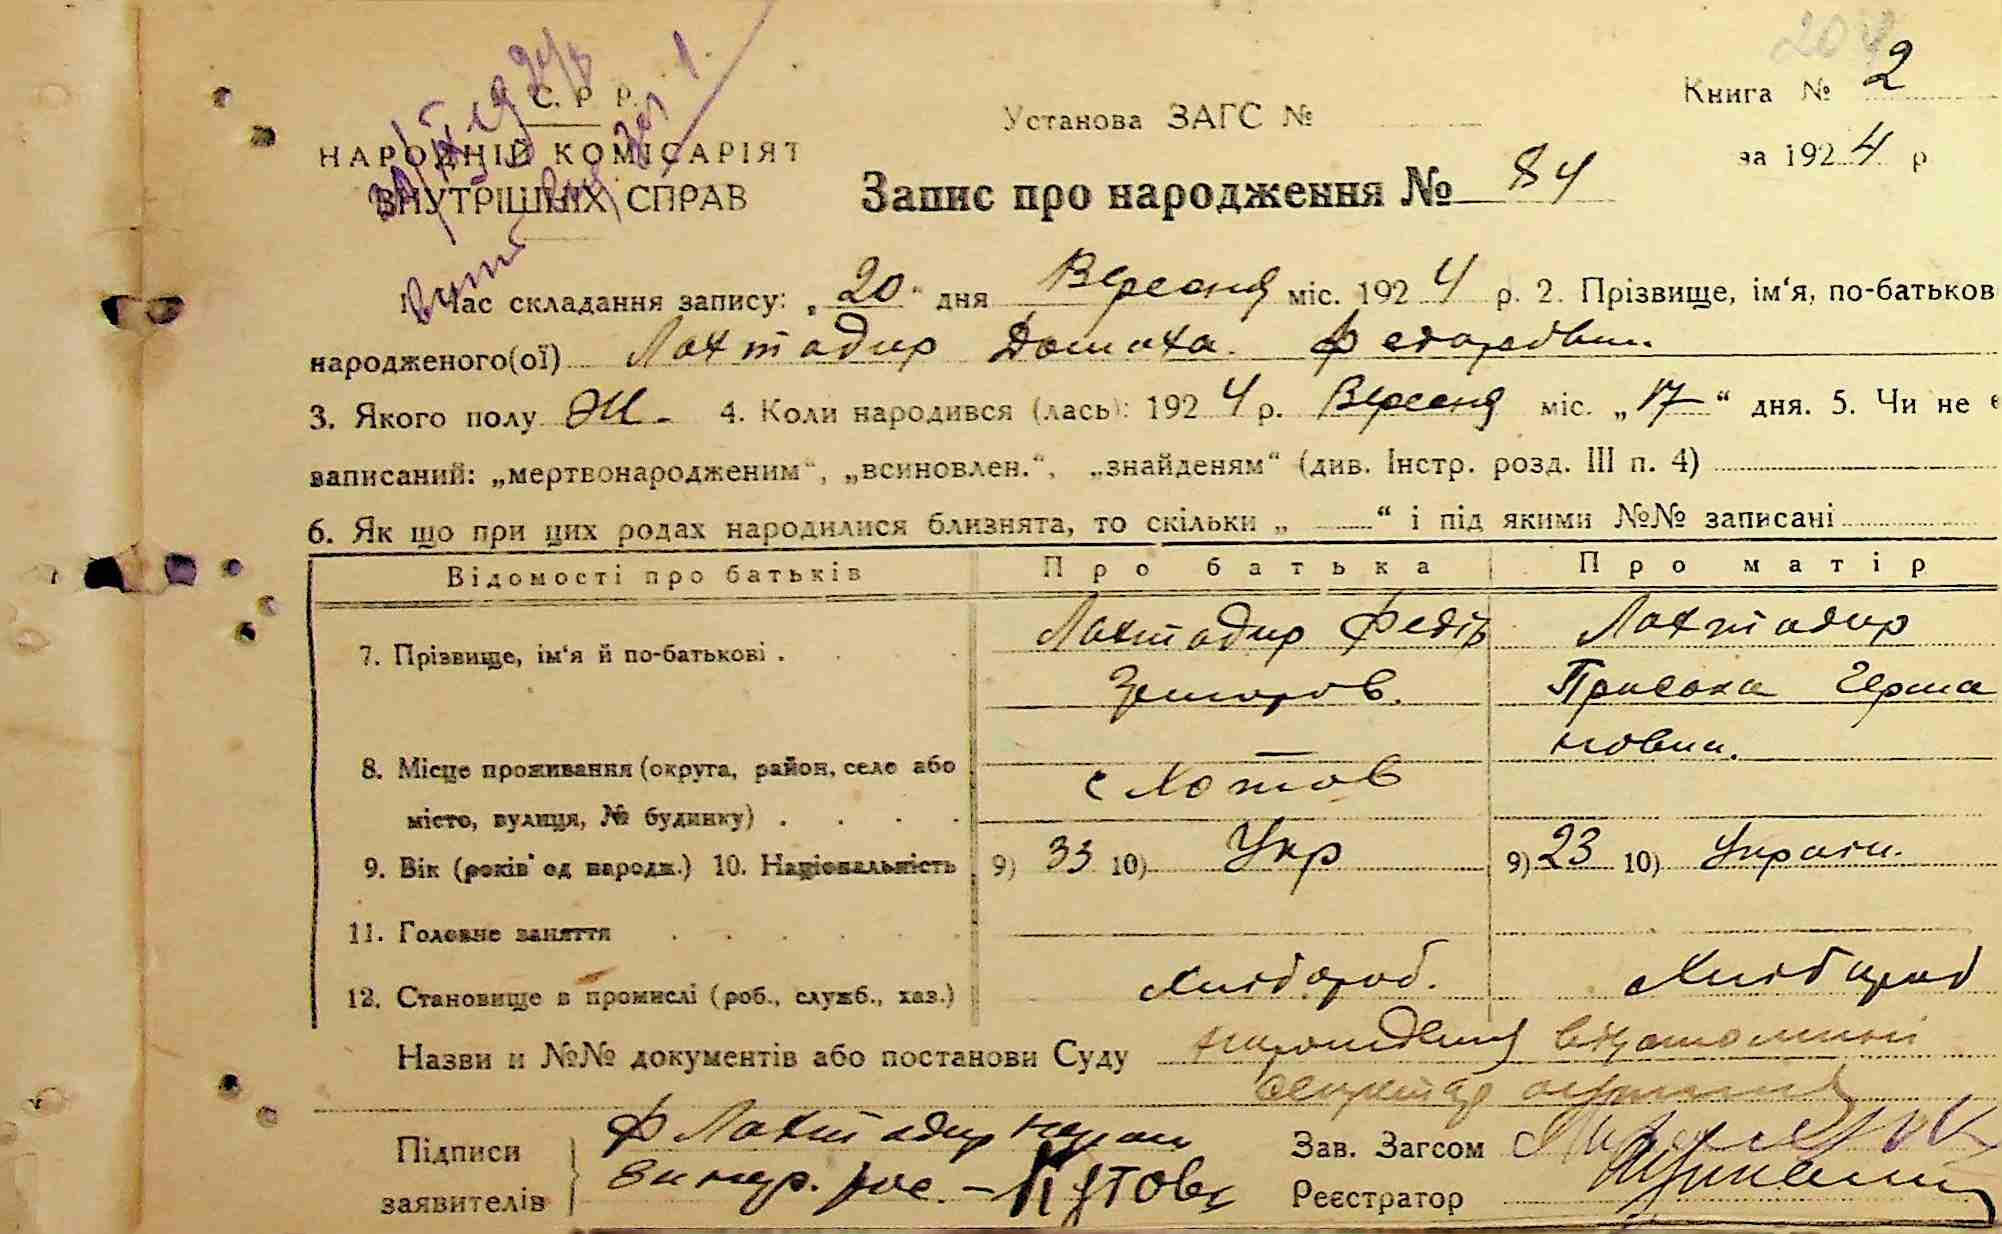 204
Книга № 2
С. Р. Р.
Установа ЗАГС №
НАРОДНІЙ КОМІСАРІЯТ
за 1924 р
ВНУТРІШНІХ СПРАВ
Запис про народження № 84
1. Час складання запису: „20" дня Вересня міс. 1924 р. 2. Прізвище, ім'я, по-батьков
народженого(ої) Лахтадир Домаха Федоровн.
3. Якого полу Ж. 4. Коли народився (лась): 1924 р. Вересня міс. „17" дня. 5. Чи не є
записаний: „мертвонародженим", „всиновлен.", „знайденям" (див. Інстр. розд. III п. 4)
6. Як що при цих родах народилися близнята, то скільки „ — " і під якими №№ записані
Відомості про батьків Про батька Про матір
7. Прізвище, ім'я й по-батькові . Лахтадир Федір Лахтадир
Григоров. Приська Герма
новна.
8. Місце проживання (округа, район, село або
місто, вулиця, № будинку) с Хотов
9. Вік (років од народж.) 10. Національність 9) 33 10) Укр 9) 23 10) Україн.
11. Головне заняття
12. Становище в промислі (роб., служб., хаз.) Хлібороб. Хлібороб
Назви и №№ документів або постанови Суду
Підписи Ф Лахтадир
заявителів Кутовы
Зав. Загсом
Реєстратор